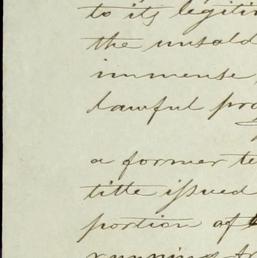 to its legitim
the unsold
immense
lawful pro
a former te
title issued
portion of t
running fr